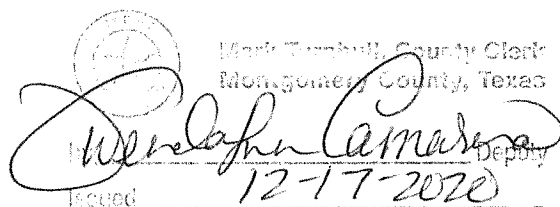 Mark Turnbull, County Clerk
Montgomery County, Texas
Deputy
Issued 12-17-2020